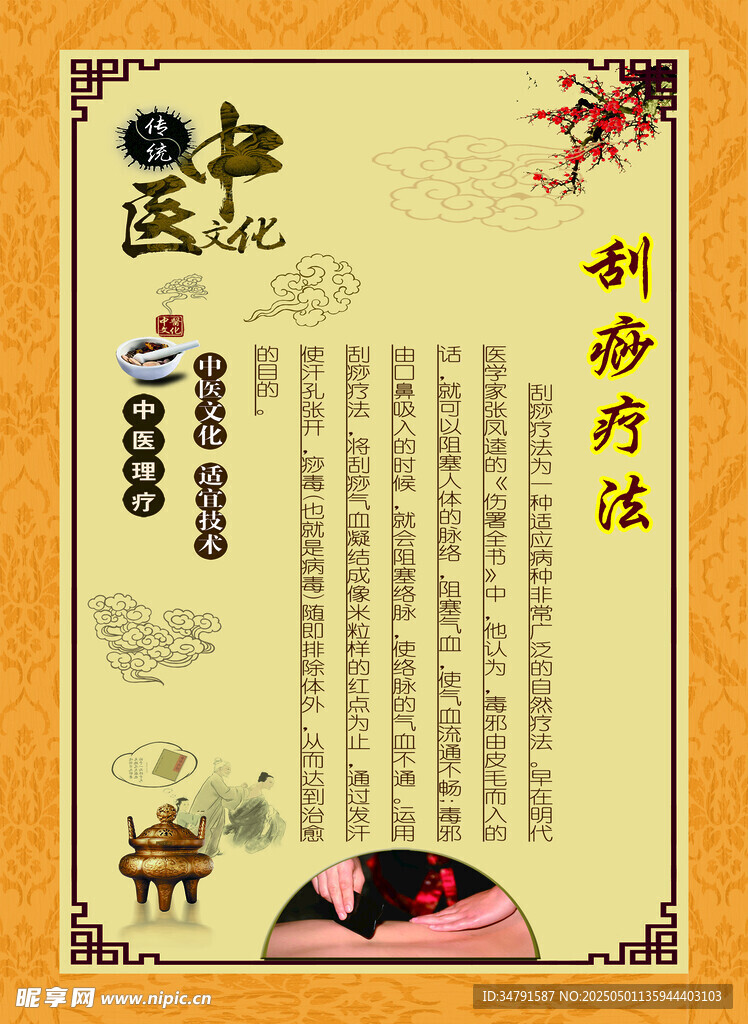 刮痧疗法
刮痧疗法为一种适应病种非常广泛的自然疗法。早在明代
医学家张凤逵的《伤署全书》中，他认为，毒邪由皮毛而入的
话，就可以阻塞人体的脉络，阻塞气血，使气血流通不畅；毒邪
由口鼻吸入的时候，就会阻塞络脉，使络脉的气血不通。运用
刮痧疗法，将刮痧气血凝结成像米粒样的红点为止，通过发汗
使汗孔张开，痧毒（也就是病毒）随即排除体外，从而达到治愈
的目的。
传统
中医文化
中医文化
中医文化 适宜技术
中医理疗
昵享网 www.nipic.cn
ID:34791587 NO:20250501135944403103